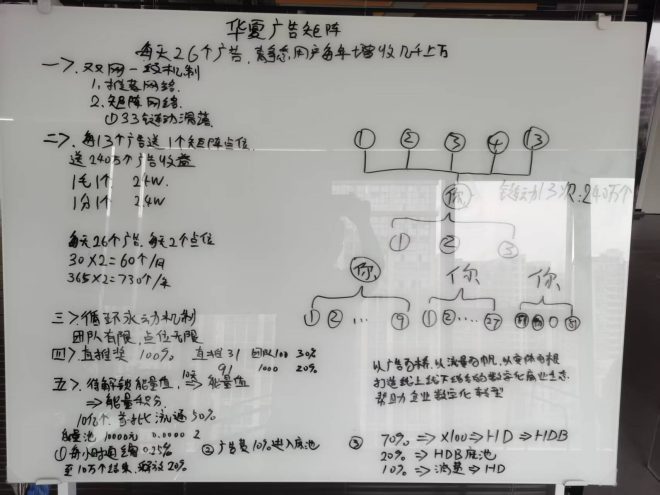 华夏广告矩阵
每天26个广告,用户每年增收几千上万
一>.双网一鼓机制
1.推荐网络
2.矩阵网络
①33链动滑落
二>.每13个广告送1个矩阵点位
送240万个广告收益
1毛1个 24W.
1分1个 2.4W
每天26个广告.每天2个点位
30×2=60个/月
365×2=730个/年
① ② ③ ④ ⑬
你
链动13次:240万个
① ② ③
你 你 你
① ② … ⑨ ① ② … ㉗
三>.循环永动机制
团队有限,点位无限
四>.直推奖 100% 直推31 团队100 30%
91 1000 20%
五>.待解锁能量值, ⇒ 能量值
⇒能量积分.
10亿个 流通50%
能量池 10000元 0.0000 2
①每小时通缩0.25%
至10万个结束,释放20%
②广告费10%进入底池
以广告为桥,以流量为帆,以实体为根
打造线上线下结合的数字化商业生态
帮助企业数字化转型
③ 70% ⇒ X100 ⇒ HD ⇒ HDB
20% ⇒ HDB底池
10% ⇒ 消费 ⇒ HD